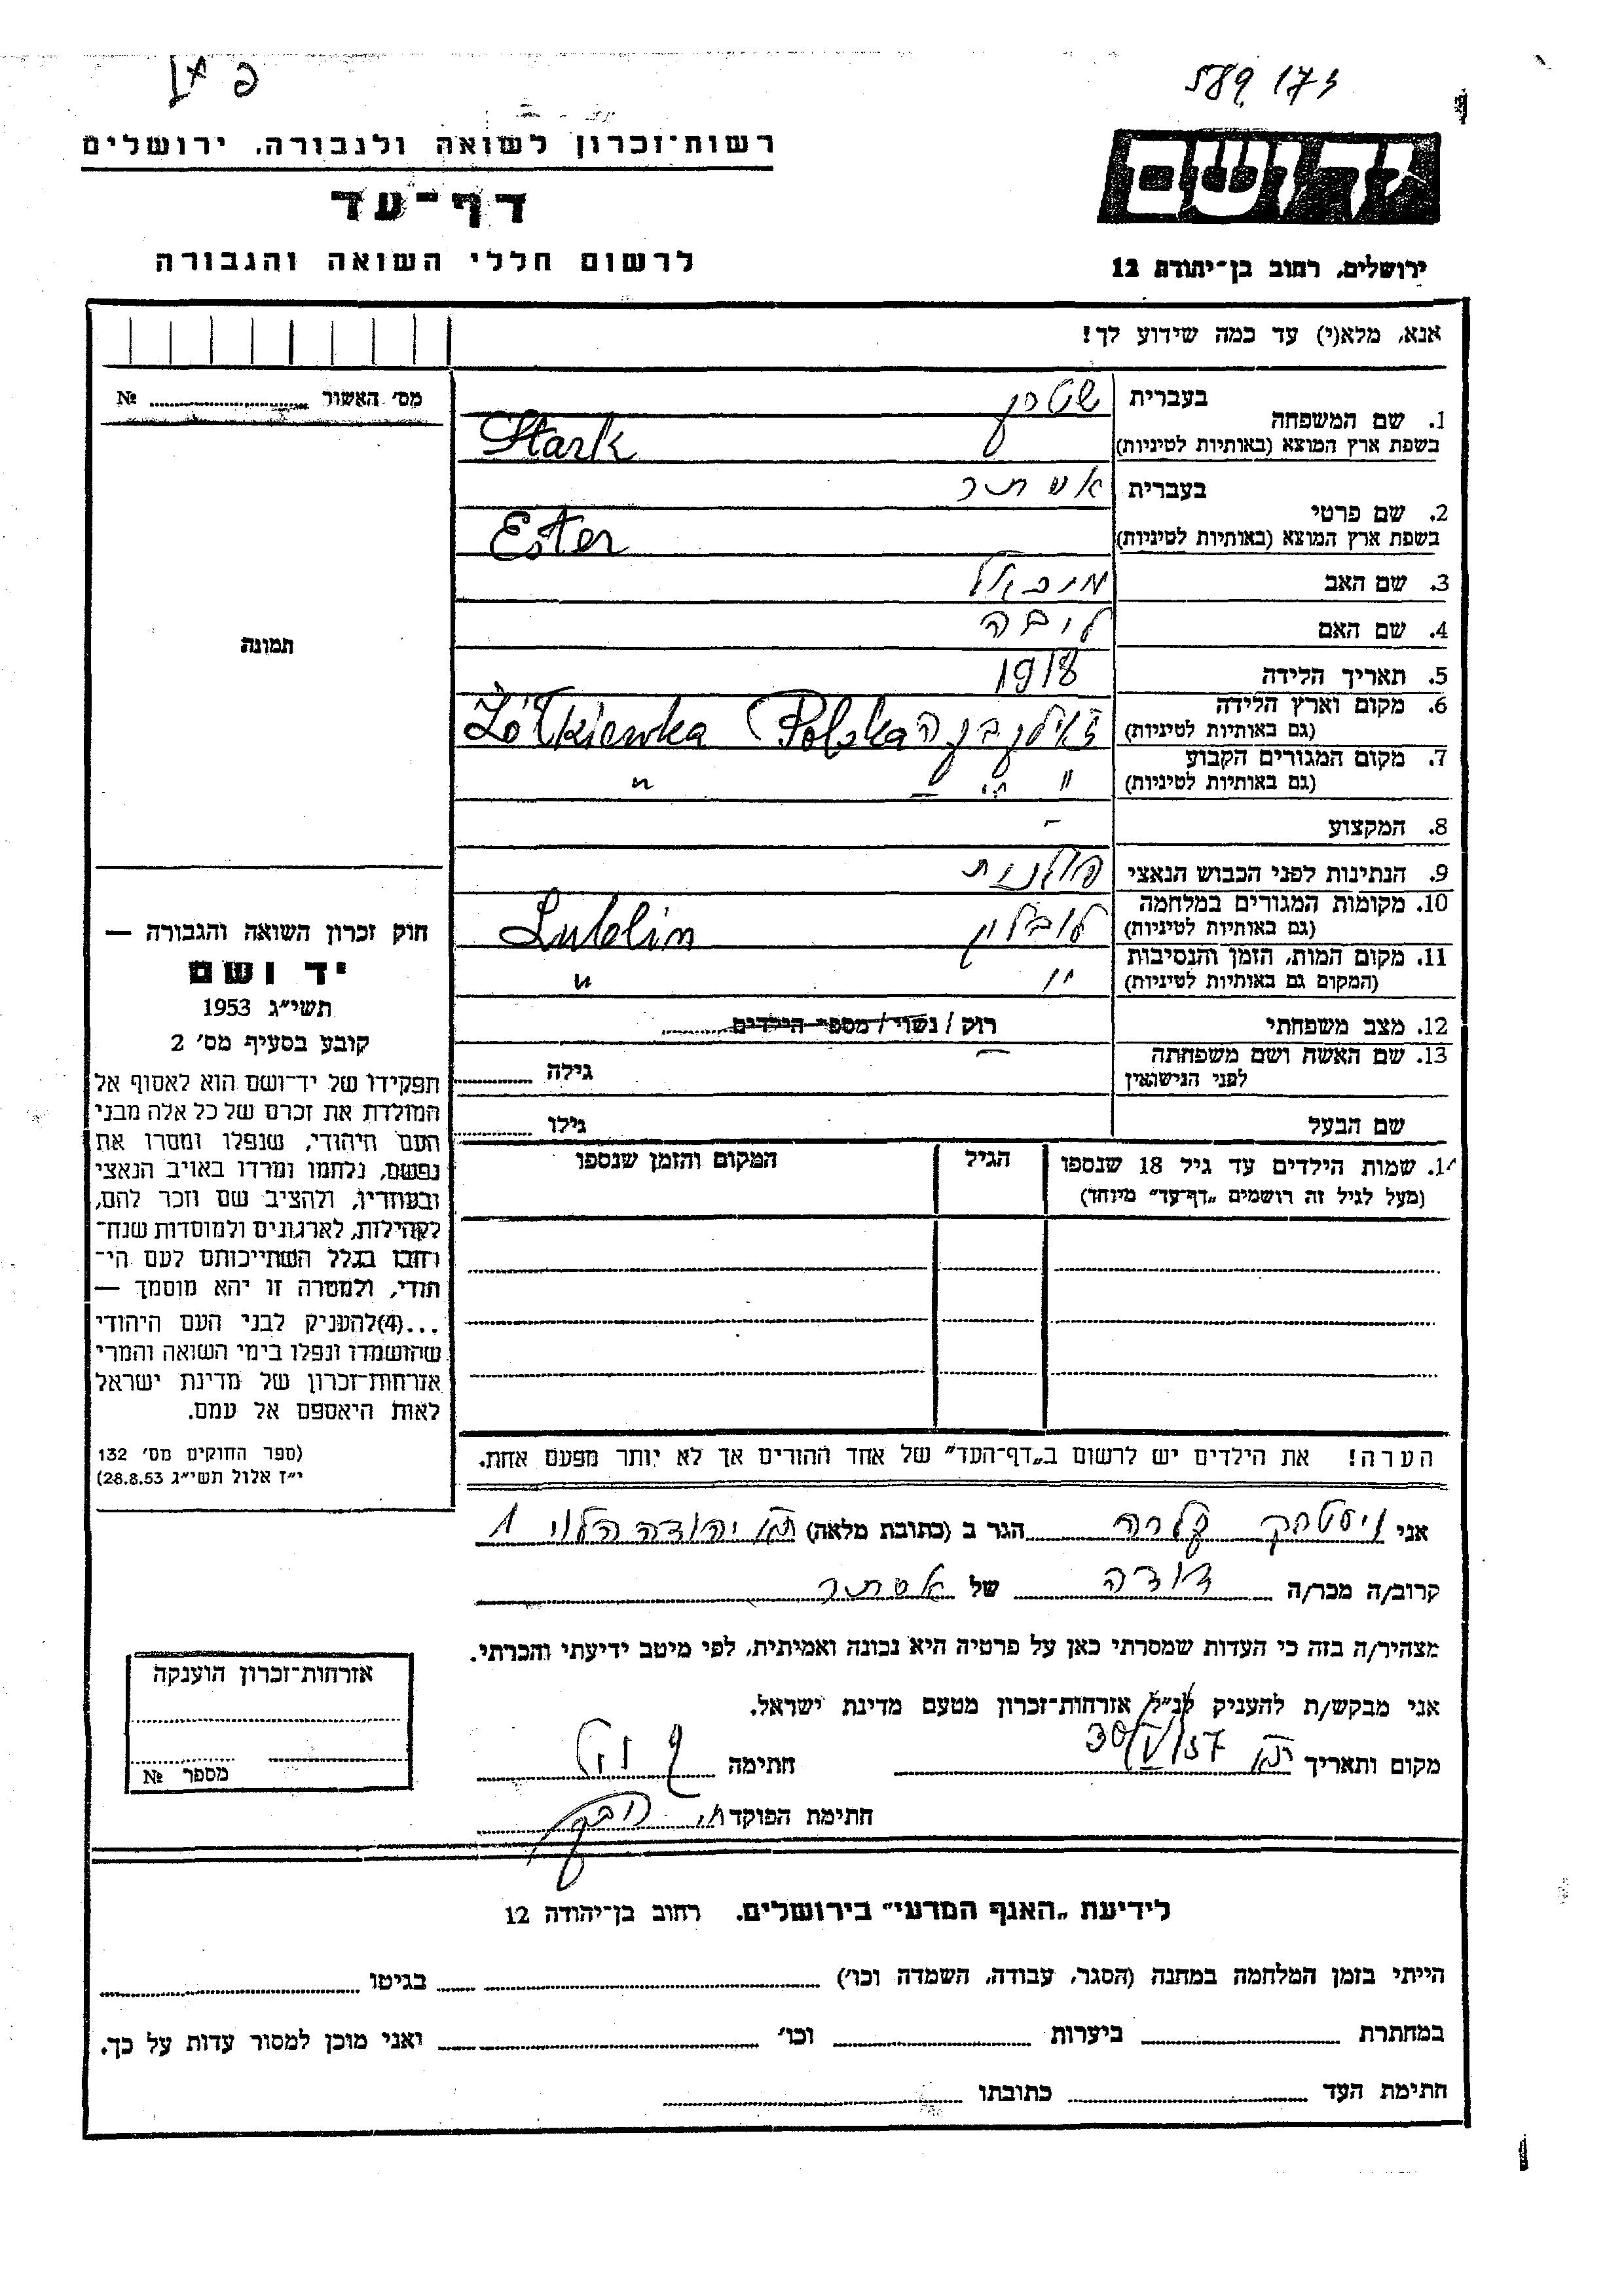 589 173
רשות־זכרון לשואה ולגבורה, ירושלים
דף־עד
לרשום חללי השואה והגבורה
יד ושם
ירושלים, רחוב בן־יהודה 12
אנא, מלא(י) עד כמה שידוע לך!
מס׳ האשור № ........
תמונה
חוק זכרון השואה והגבורה —
יד ושם
תשי״ג 1953
קובע בסעיף מס׳ 2
תפקידו של יד־ושם הוא לאסוף אל
המולדת את זכרם של כל אלה מבני
העם היהודי, שנפלו ומסרו את
נפשם, נלחמו ומרדו באויב הנאצי
ובעוזריו, ולהציב שם וזכר להם,
לקהילות, לארגונים ולמוסדות שנח־
רבו בגלל השתייכותם לעם הי־
הודי, ולמטרה זו יהא מוסמך —
...(4)להעניק לבני העם היהודי
שהושמדו ונפלו בימי השואה והמרי
אזרחות־זכרון של מדינת ישראל
לאות היאספם אל עמם.
(ספר החוקים מס׳ 132
י״ז אלול תשי״ג 28.8.53)
1. שם המשפחה
בעברית שטרק
בשפת ארץ המוצא (באותיות לטיניות) Stark
2. שם פרטי
בעברית אסתר
בשפת ארץ המוצא (באותיות לטיניות) Ester
3. שם האב מיכאל
4. שם האם ליבה
5. תאריך הלידה 1918
6. מקום וארץ הלידה
(גם באותיות לטיניות) Żółkiewka Polska
7. מקום המגורים הקבוע
(גם באותיות לטיניות) " "
8. המקצוע -
9. הנתינות לפני הכבוש הנאצי פולנית
10. מקומות המגורים במלחמה
(גם באותיות לטיניות) לובלין Lublin
11. מקום המות, הזמן והנסיבות
(המקום גם באותיות לטיניות) " "
12. מצב משפחתי רוק / נשוי / מספר הילדים ........
13. שם האשה ושם משפחתה
לפני הנישואין — גילה ........
שם הבעל גילו ........
14. שמות הילדים עד גיל 18 שנספו
(מעל לגיל זה רושמים „דף־עד״ מיוחד)
הגיל
המקום והזמן שנספו
הערה! את הילדים יש לרשום ב„דף־העד״ של אחד ההורים אך לא יותר מפעם אחת.
אני קלרה הגר ב (כתובת מלאה) יהודה הלוי 1
קרוב/ה מכר/ה דודה של אסתר
מצהיר/ה בזה כי העדות שמסרתי כאן על פרטיה היא נכונה ואמיתית, לפי מיטב ידיעתי והכרתי.
אני מבקש/ת להעניק לנ״ל אזרחות־זכרון מטעם מדינת ישראל.
מקום ותאריך ת״א 30/V/57 חתימה
חתימת הפוקד
אזרחות־זכרון הוענקה
מספר №
לידיעת „האגף המדעי״ בירושלים, רחוב בן־יהודה 12
הייתי בזמן המלחמה במחנה (הסגר, עבודה, השמדה וכו׳) ........ בגיטו ........
במחתרת ........ ביערות ........ וכו׳ ........ ואני מוכן למסור עדות על כך.
חתימת העד ........ כתובתו ........